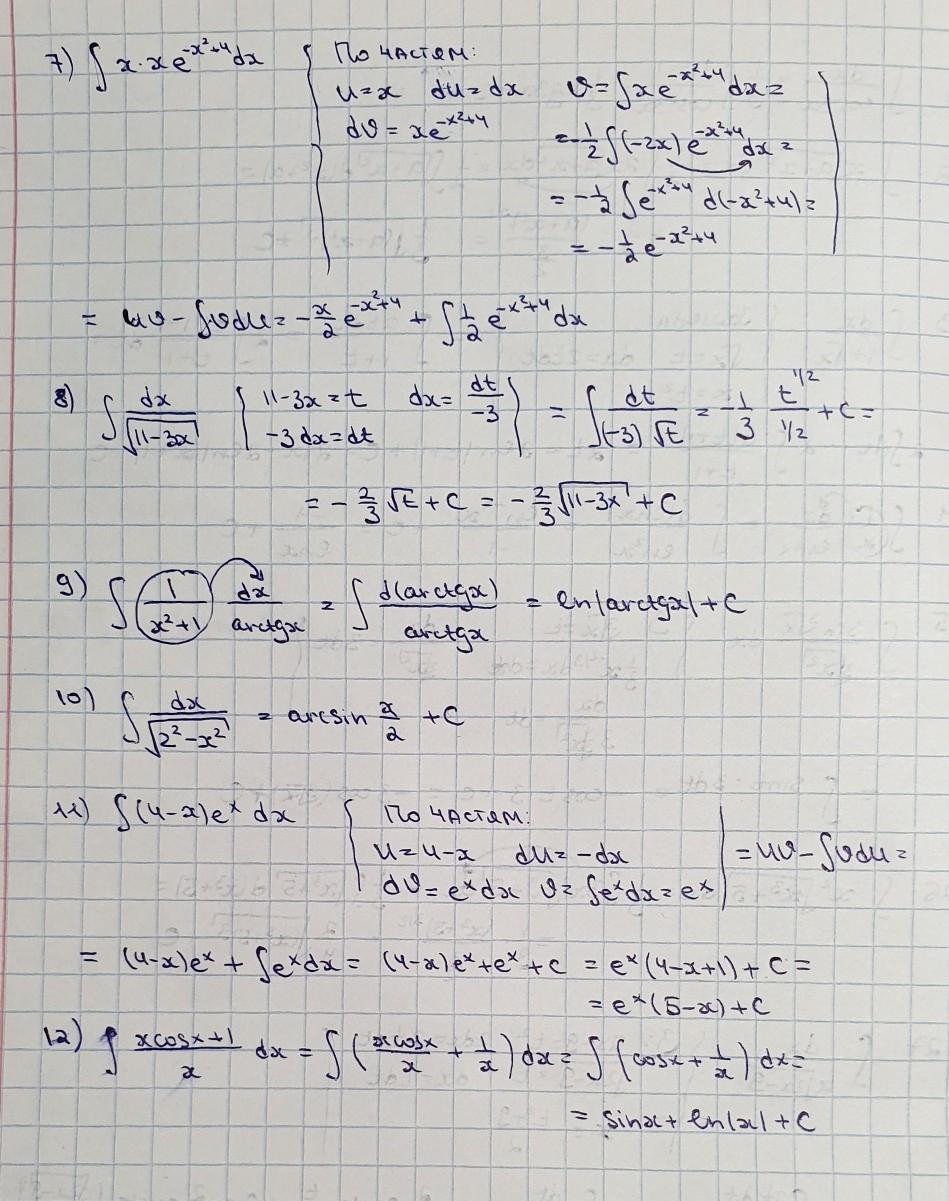 7) ∫ x·x e^{-x²+4} dx { По частям:
u=x du=dx v=∫x e^{-x²+4} dx =
dv = x e^{-x²+4} = -1/2 ∫(-2x) e^{-x²+4} dx =
= -1/2 ∫ e^{-x²+4} d(-x²+4) =
= -1/2 e^{-x²+4}
= uv - ∫v du = -x/2 e^{-x²+4} + ∫ 1/2 e^{-x²+4} dx
8) ∫ dx/√(11-3x) { 11-3x=t dx = dt/-3 -3dx=dt } = ∫ dt/((-3)√t) = -1/3 t^{1/2}/(1/2) + C =
= -2/3 √t + C = -2/3 √(11-3x) + C
9) ∫ 1/(x²+1) dx/arctgx = ∫ d(arctgx)/arctgx = ln|arctgx| + C
10) ∫ dx/√(2²-x²) = arcsin x/2 + C
11) ∫(4-x)e^x dx { По частям:
u=4-x du=-dx | = uv - ∫v du =
dv = e^x dx v = ∫e^x dx = e^x
= (4-x)e^x + ∫e^x dx = (4-x)e^x + e^x + C = e^x(4-x+1) + C =
= e^x(5-x) + C
12) ∫ (xcosx+1)/x dx = ∫ (xcosx/x + 1/x) dx = ∫ (cosx + 1/x) dx =
= sinx + ln|x| + C